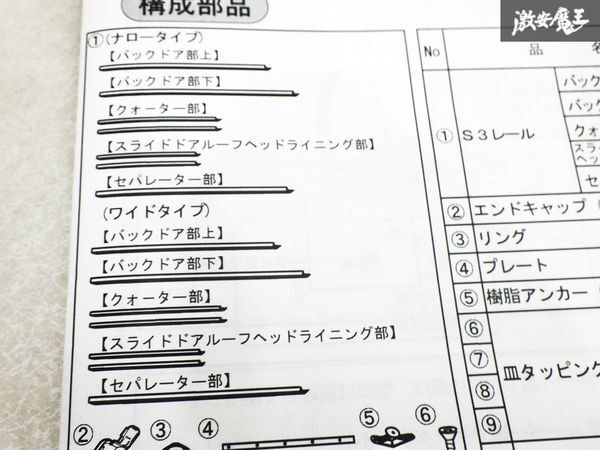 構成部品
激安魔王
①(ナロータイプ)
【バックドア部上】
【バックドア部下】
【クォーター部】
【スライドドアルーフヘッドライニング部】
【セパレーター部】
(ワイドタイプ)
【バックドア部上】
【バックドア部下】
【クォーター部】
【スライドドアルーフヘッドライニング部】
【セパレーター部】
② ③ ④ ⑤ ⑥
No 品 名
① S3レール
バック
バック
クォ
スラ
ヘッ
セ
② エンドキャップ(
③ リング
④ プレート
⑤ 樹脂アンカー(
⑥
⑦
皿タッピング
⑧
⑨